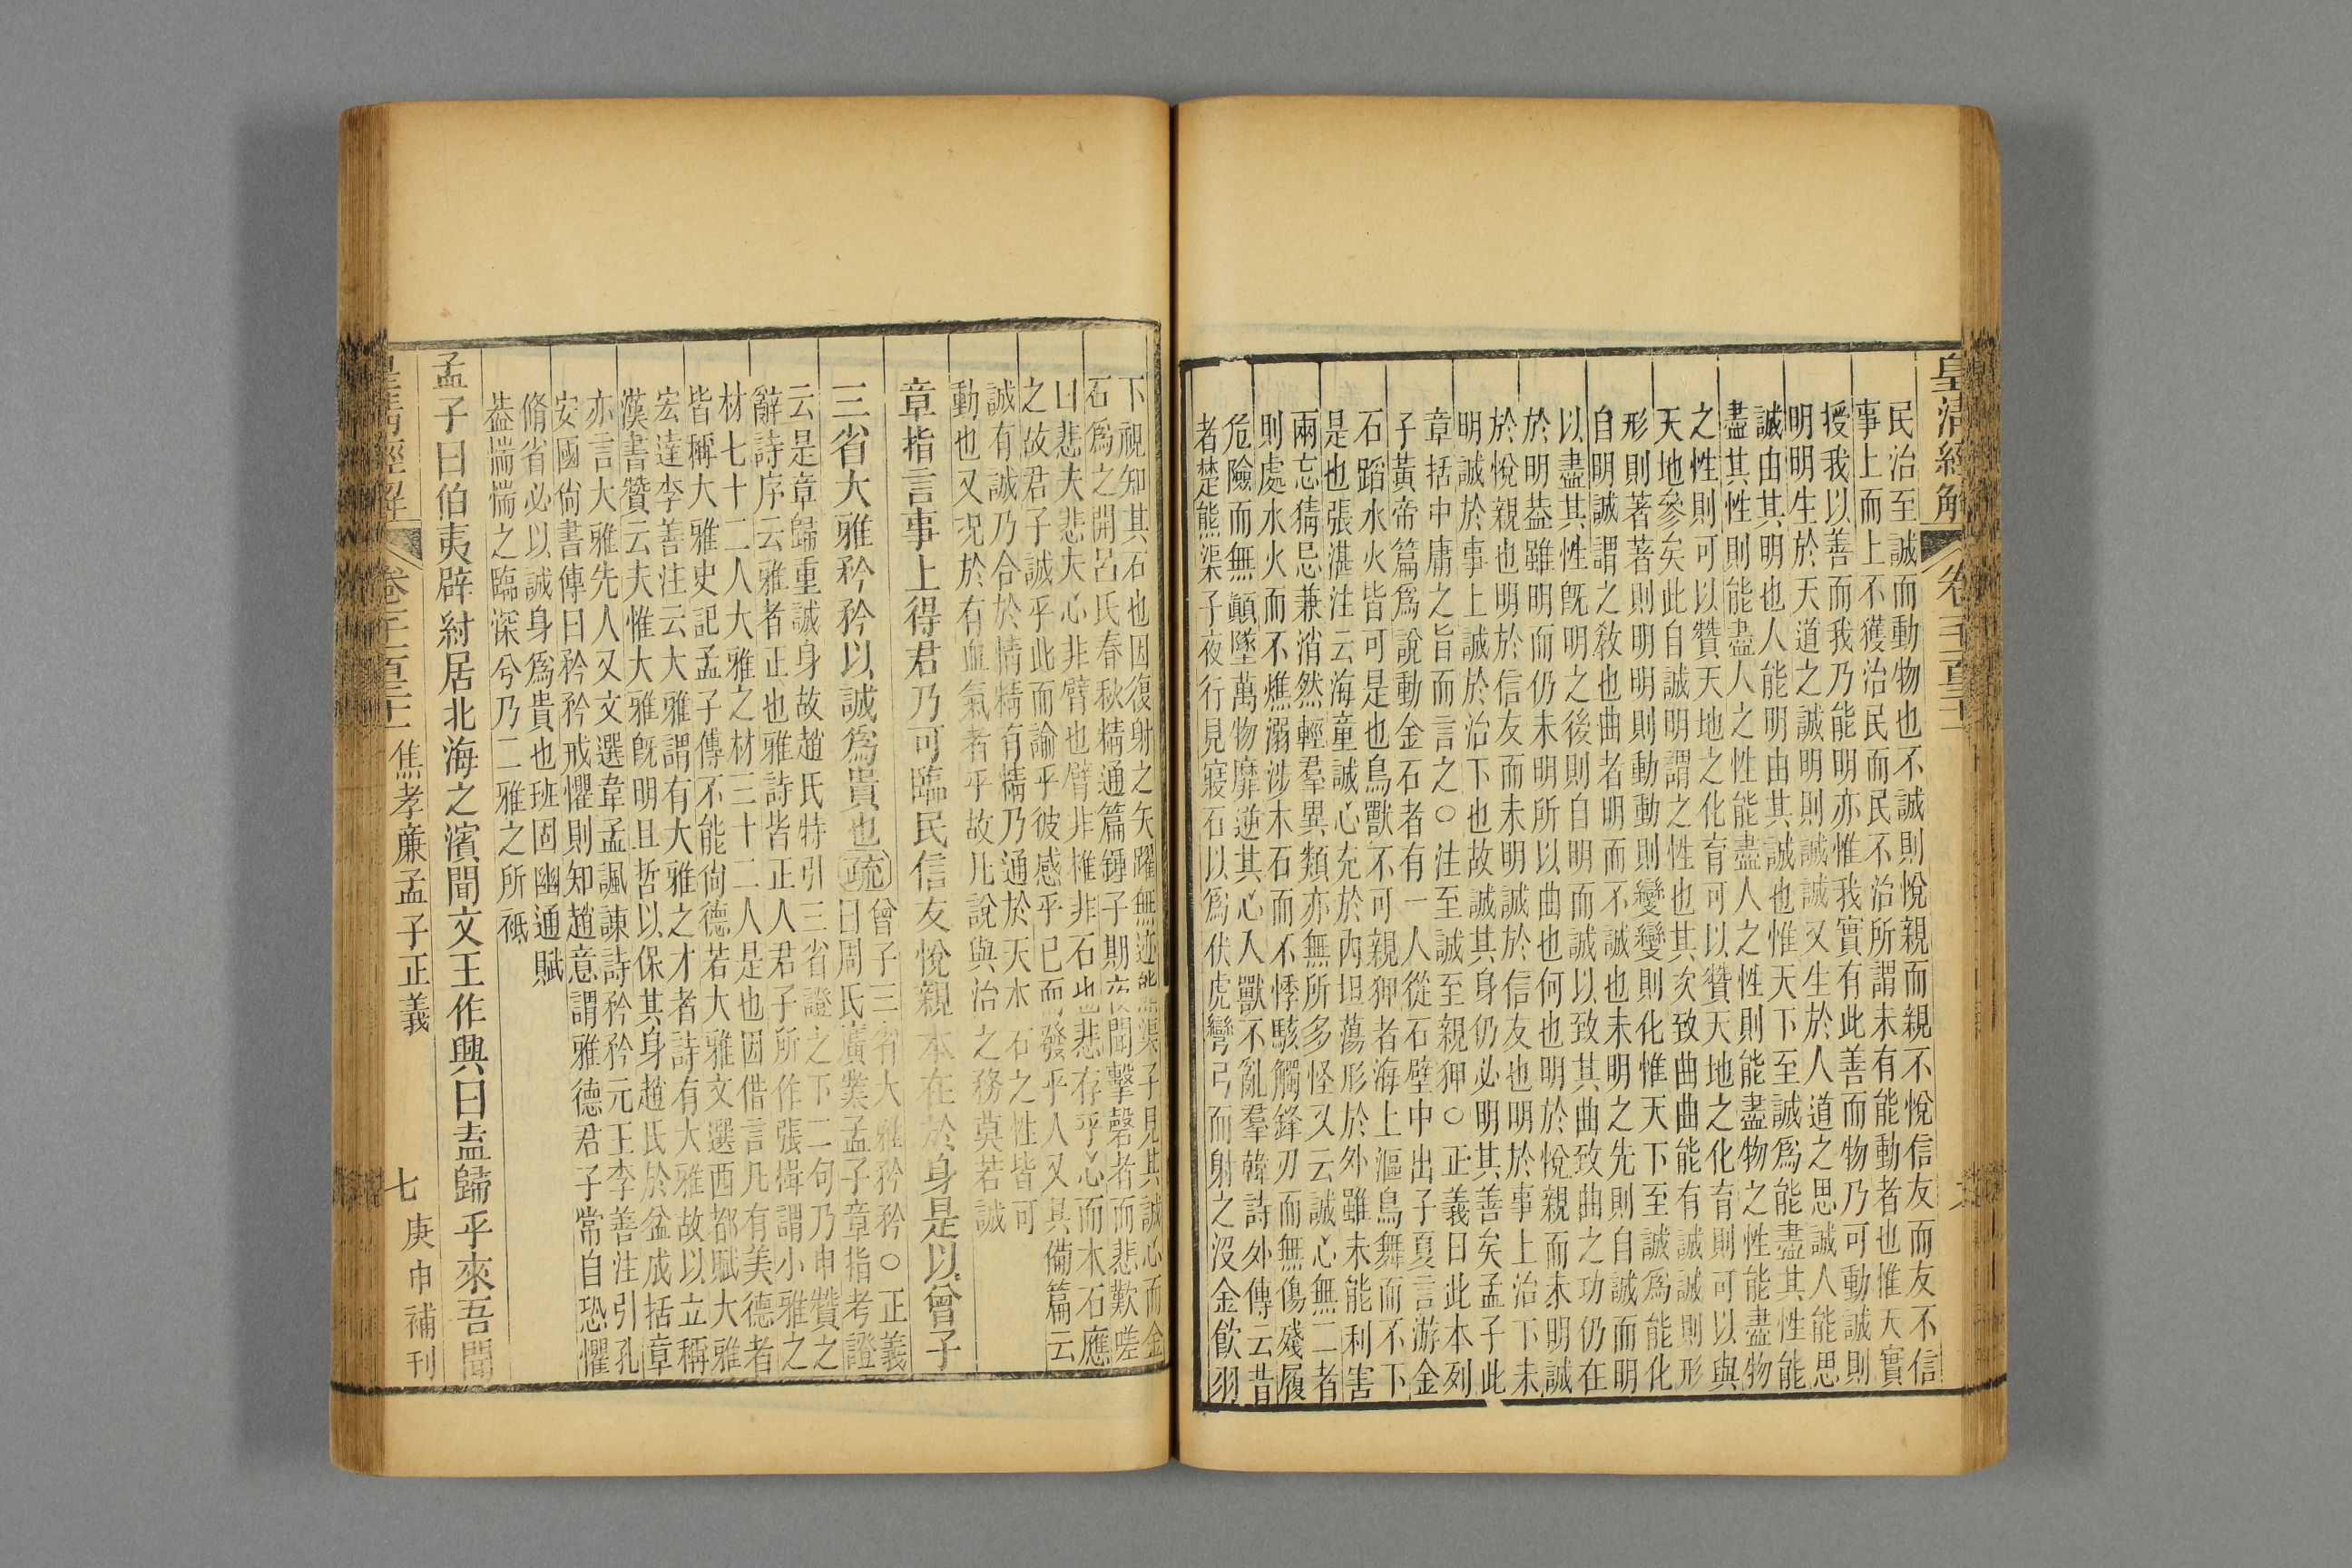 皇清經解
民治至誠而動物也不誠則悅親而親不悅信友而友不信
事上而上不獲治民而民不治所謂未有能動者也惟天實
授我以善而我乃能明亦惟我實有此善而物乃可動誠則
明明生於天道之誠明則誠誠又生於人道之思誠人能思
誠由其明也人能明由其誠也惟天下至誠爲能盡其性能
盡其性則能盡人之性能盡人之性則能盡物之性能盡物
之性則可以贊天地之化育可以贊天地之化育則可以與
天地參矣此自誠明謂之性也其次致曲曲能有誠誠則形
形則著著則明明則動動則變變則化惟天下至誠爲能化
自明誠謂之教也曲者明而不誠也未明之先則自誠而明
以盡其性旣明之後則自明而誠以致其曲致曲之功仍在
於明葢雖明而仍未明所以曲也何也明於悅親而未明誠
於悅親也明於信友而未明誠於信友也明於事上治下未
明誠於事上誠於治下也故誠其身仍必明其善矣孟子此
章括中庸之旨而言之○注至誠至親狎○正義曰此本列
子黃帝篇爲說動金石者有一人從石壁中出子夏言游金
石蹈水火皆可是也鳥獸不可親狎者海上漚鳥舞而不下
是也張湛注云海童誠心充於內坦蕩形於外雖未能利害
兩忘猜忌兼消然輕羣異類亦無所多怪又云誠心無二者
則處水火而不燋溺涉木石而不悸駭觸鋒刃而無傷殘履
危險而無顚墜萬物靡逆其心入獸不亂羣韓詩外傳云昔
者楚熊渠子夜行見寢石以爲伏虎彎弓而射之沒金飮羽
下視知其石也因復射之矢躍無迹熊渠子見其誠心而金
石爲之開呂氏春秋精通篇鍾子期夜聞擊磬者而悲歎嗟
曰悲夫悲夫心非臂也臂非椎非石也悲存乎心而木石應
之故君子誠乎此而諭乎彼感乎已而發乎人又具備篇云
誠有誠乃合於情精有精乃通於天水石之性皆可
動也又況於有血氣者乎故凡說與治之務莫若誠
章指言事上得君乃可臨民信友悅親本在於身是以曾子
三省大雅矜矜以誠爲貴也疏曾子三省大雅矜矜○正義
曰周氏廣業孟子章指考證
云是章歸重誠身故趙氏特引三省證之下二句乃申贊之
辭詩序云雅者正也雅詩皆正人君子所作張楫謂小雅之
材七十二人大雅之材三十二人是也因借言凡有美德者
皆稱大雅史記孟子傳不能尙德若大雅文選西都賦大雅
宏達李善注云大雅謂有大雅之才者詩有大雅故以立稱
漢書贊云夫惟大雅旣明且哲以保其身趙氏於盆成括章
亦言大雅先人又文選韋孟諷諫詩矜矜元王李善注引孔
安國尙書傳曰矜矜戒懼則知趙意謂雅德君子常自恐懼
脩省必以誠身爲貴也班固幽通賦
葢惴惴之臨深兮乃二雅之所祗
孟子曰伯夷辟紂居北海之濱聞文王作興曰盍歸乎來吾聞
皇清經解 焦孝廉孟子正義 七 庚申補刊